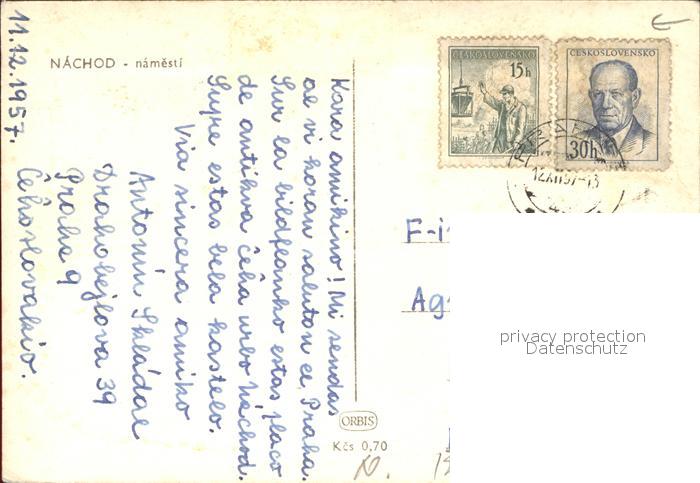 11.12.1957.
NÁCHOD - náměstí
Kara amikino! Mi sendas
al vi koran saluton el Praha.
Sur la bildflanko estas placo
de antikva ĉeĥa urbo Náchod.
Supre estas bela kastelo.
Via sincera amiko
Antonín Skládal
Drahobejlova 39
Praha 9
Ĉeĥoslovakio.
ČESKOSLOVENSKO
15h
ČESKOSLOVENSKO
30h
12.XII.57-13
F-i
Ag
privacy protection
Datenschutz
ORBIS
Kčs 0,70
N.